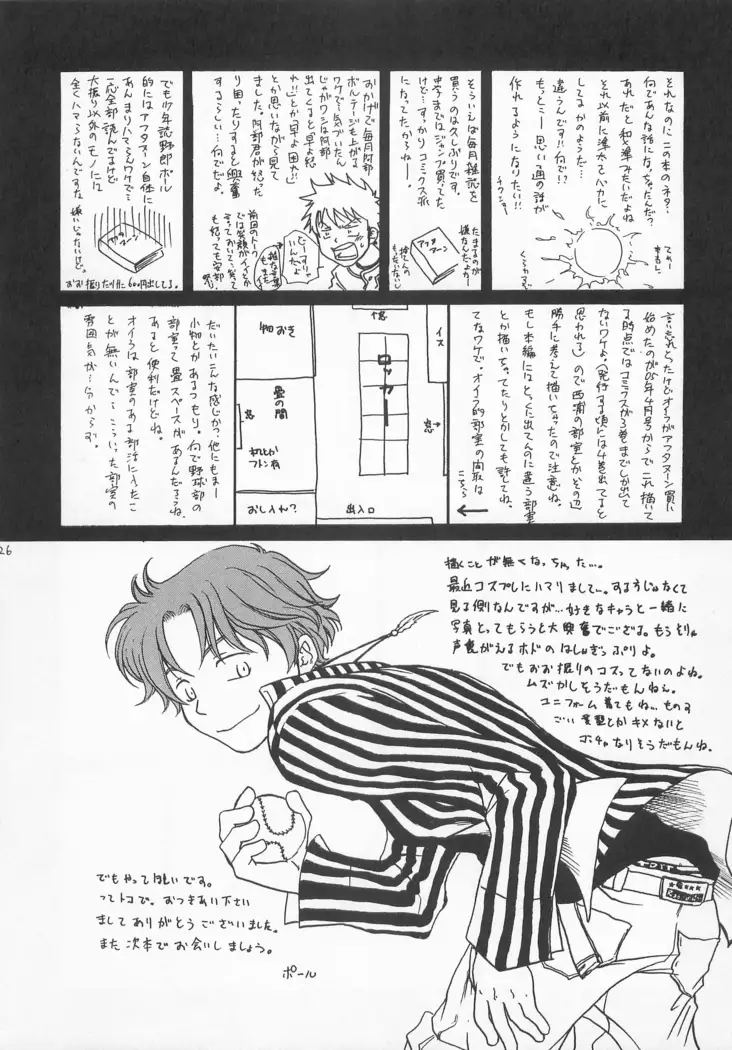 それなのにこの本のネタ…
何であんな話になっちゃったんだ?
あれだと和×準みたいだよね
それ以前に準太てバカに
してるかのような…
違うんです!!何で!?
もっとこー思い通りの話が
作れるようになりたい!!
そういえば毎月雑誌を
買うのは久しぶりです。
中学までは
ジャンプ買ってた
けど…すっかりコミックス派
になってたからねー。
たまるのが
嫌なんだよねー
捨てんの
もったいない
アフタ
ヌーン
おかげで毎月阿部
ボルテージも上がる
ワケで…気づいたん
じゃがワシは阿部
出てくると早よ怒
れ!!とか早よ困れ!!
とか思いながら見て
ました。阿部君が怒った
り困ったりすると興奮
するらしい…何でだよ。
でも少年誌野郎ポール
的にはアフタヌーン自体に
あんまりハマってるワケで…
一応全部読んでるけど
大振り以外のモノには
全くハマらないんですな
嫌いじゃないけど。
アフタ
ヌーン
おお振りだけに600円出してる。
言い忘れとったけどオイラがアフタヌーン買い
始めたのが05年4月号からでこれ描いて
る時点ではコミックスが3巻までしか出て
ないワケよ。(発行する頃には4巻出てると
思われる)ので西浦の部室とかその辺
勝手に考えて描いちゃったので注意ね。
もし本編にはとっくに出てんのに違う部室
とか描いちゃってたりとかしても許してね。
てなワケで、オイラ的部室の間取は
こちら
窓
イス
ロッカー
窓
物おき
畳の間
窓
おし入れ?
出入口
だいたいこんな感じかつ他にもまー
小物とかあるつもり。何で野球部の
部室って畳スペースがあるんだろうね。
あると便利だけどね。
オイラは部室のある部活に入たこ
とが無いんで…こういった部室の
雰囲気が…分からず。
26
描くことが無くなっちゃた…。
最近コスプレにハマリまして…。するうじゃなくて
見る側なんですが…好きなキャラと一緒に
写真とってもらうと大興奮でござる。もうそりゃ
声裏がえるホドのはしゃぎっぷりよ。
でもおお振りのコスってないのよね。
ムズかしそうだもんねぇ。
ユニフォーム着てもね…ものす
ごい髪型とかキメないと
ゴッチャなりそうだもんね。
でもやって欲しいです。
ってトコで。おつきあい下さい
ましてありがとうございました。
また次本でお会いしましょう。
ポール